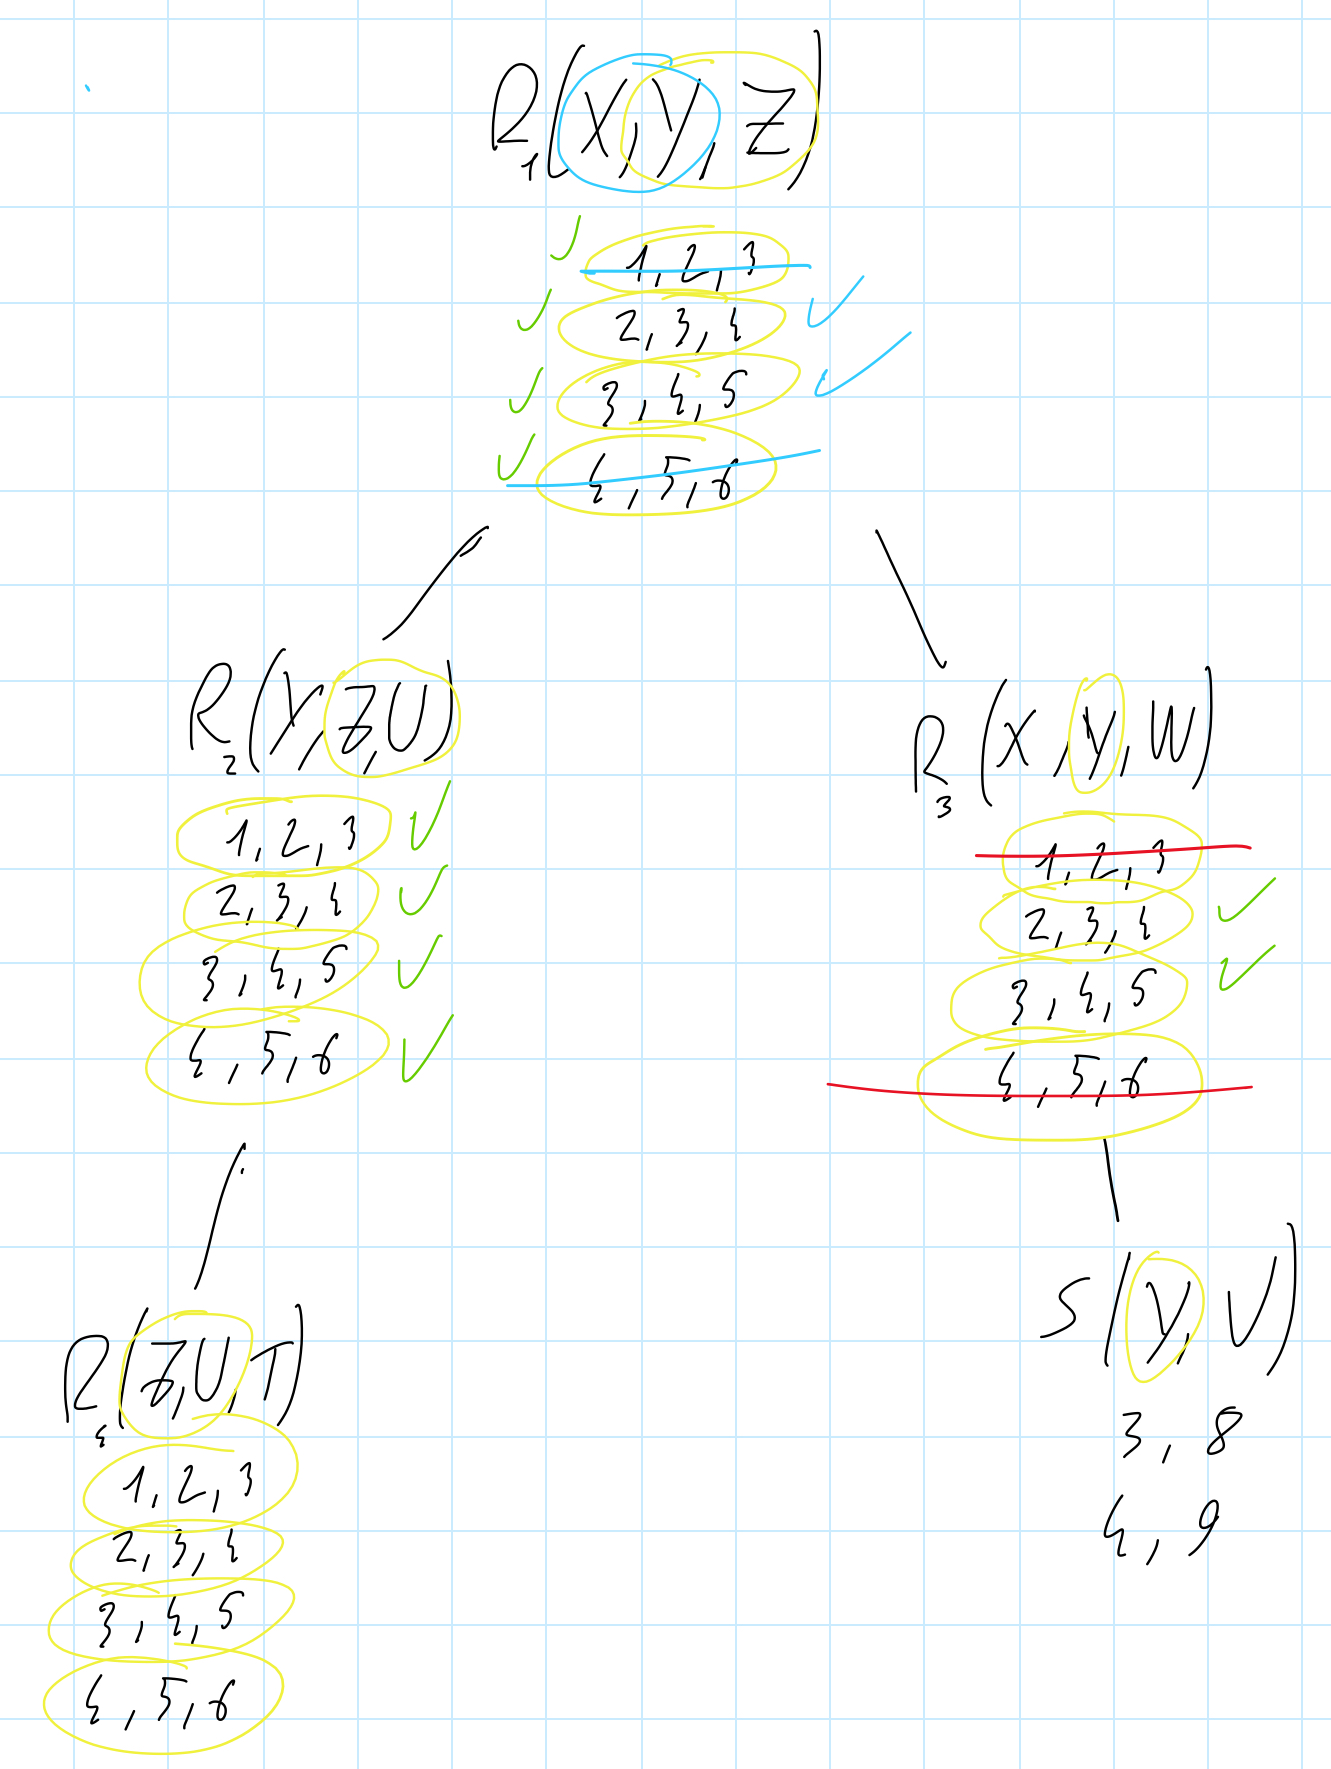 R₁(X, Y, Z)
1, 2, 3
2, 3, 4
3, 4, 5
4, 5, 6
R₂(Y, Z, U)
1, 2, 3
2, 3, 4
3, 4, 5
4, 5, 6
R₃(X, Y, W)
1, 2, 3
2, 3, 4
3, 4, 5
4, 5, 6
R₄(Z, U, T)
1, 2, 3
2, 3, 4
3, 4, 5
4, 5, 6
S(Y, V)
3, 8
4, 9